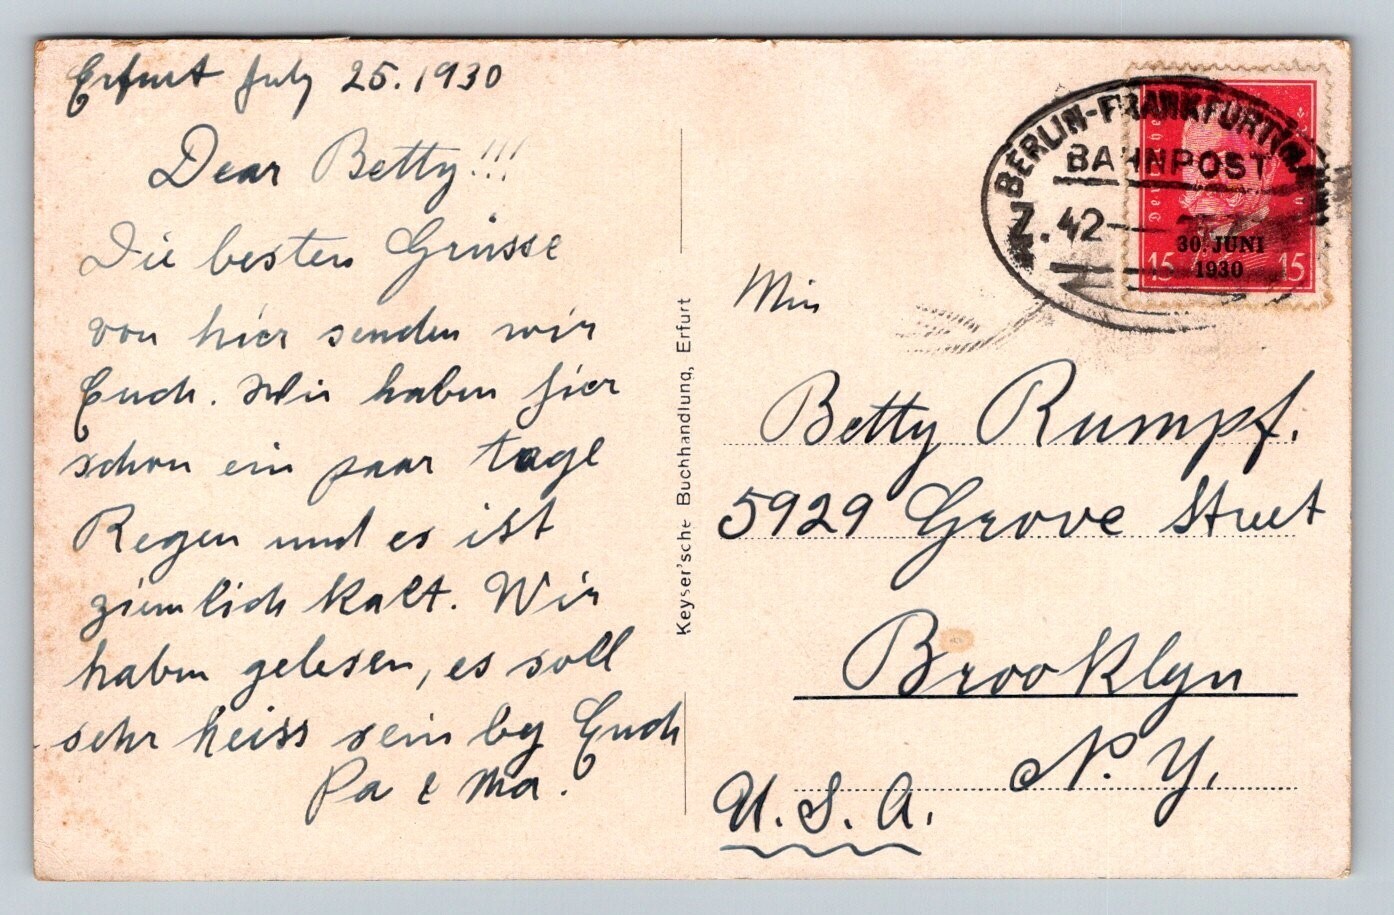 Erfurt July 25. 1930
Dear Betty!!!
Die besten Grüsse
von hier senden wir
Euch. Wir haben hier
schon ein paar tage
Regen und es ist
ziemlich kalt. Wir
haben gelesen, es soll
sehr heiss sein by Euch
Pa & Ma.
Keyser'sche Buchhandlung, Erfurt
BERLIN-FRANKFURT
BAHNPOST
Z. 42
30. JUNI
1930
15 15
Betty Rumpf.
5929 Grove Street
Brooklyn
N. Y.
U. S. A.